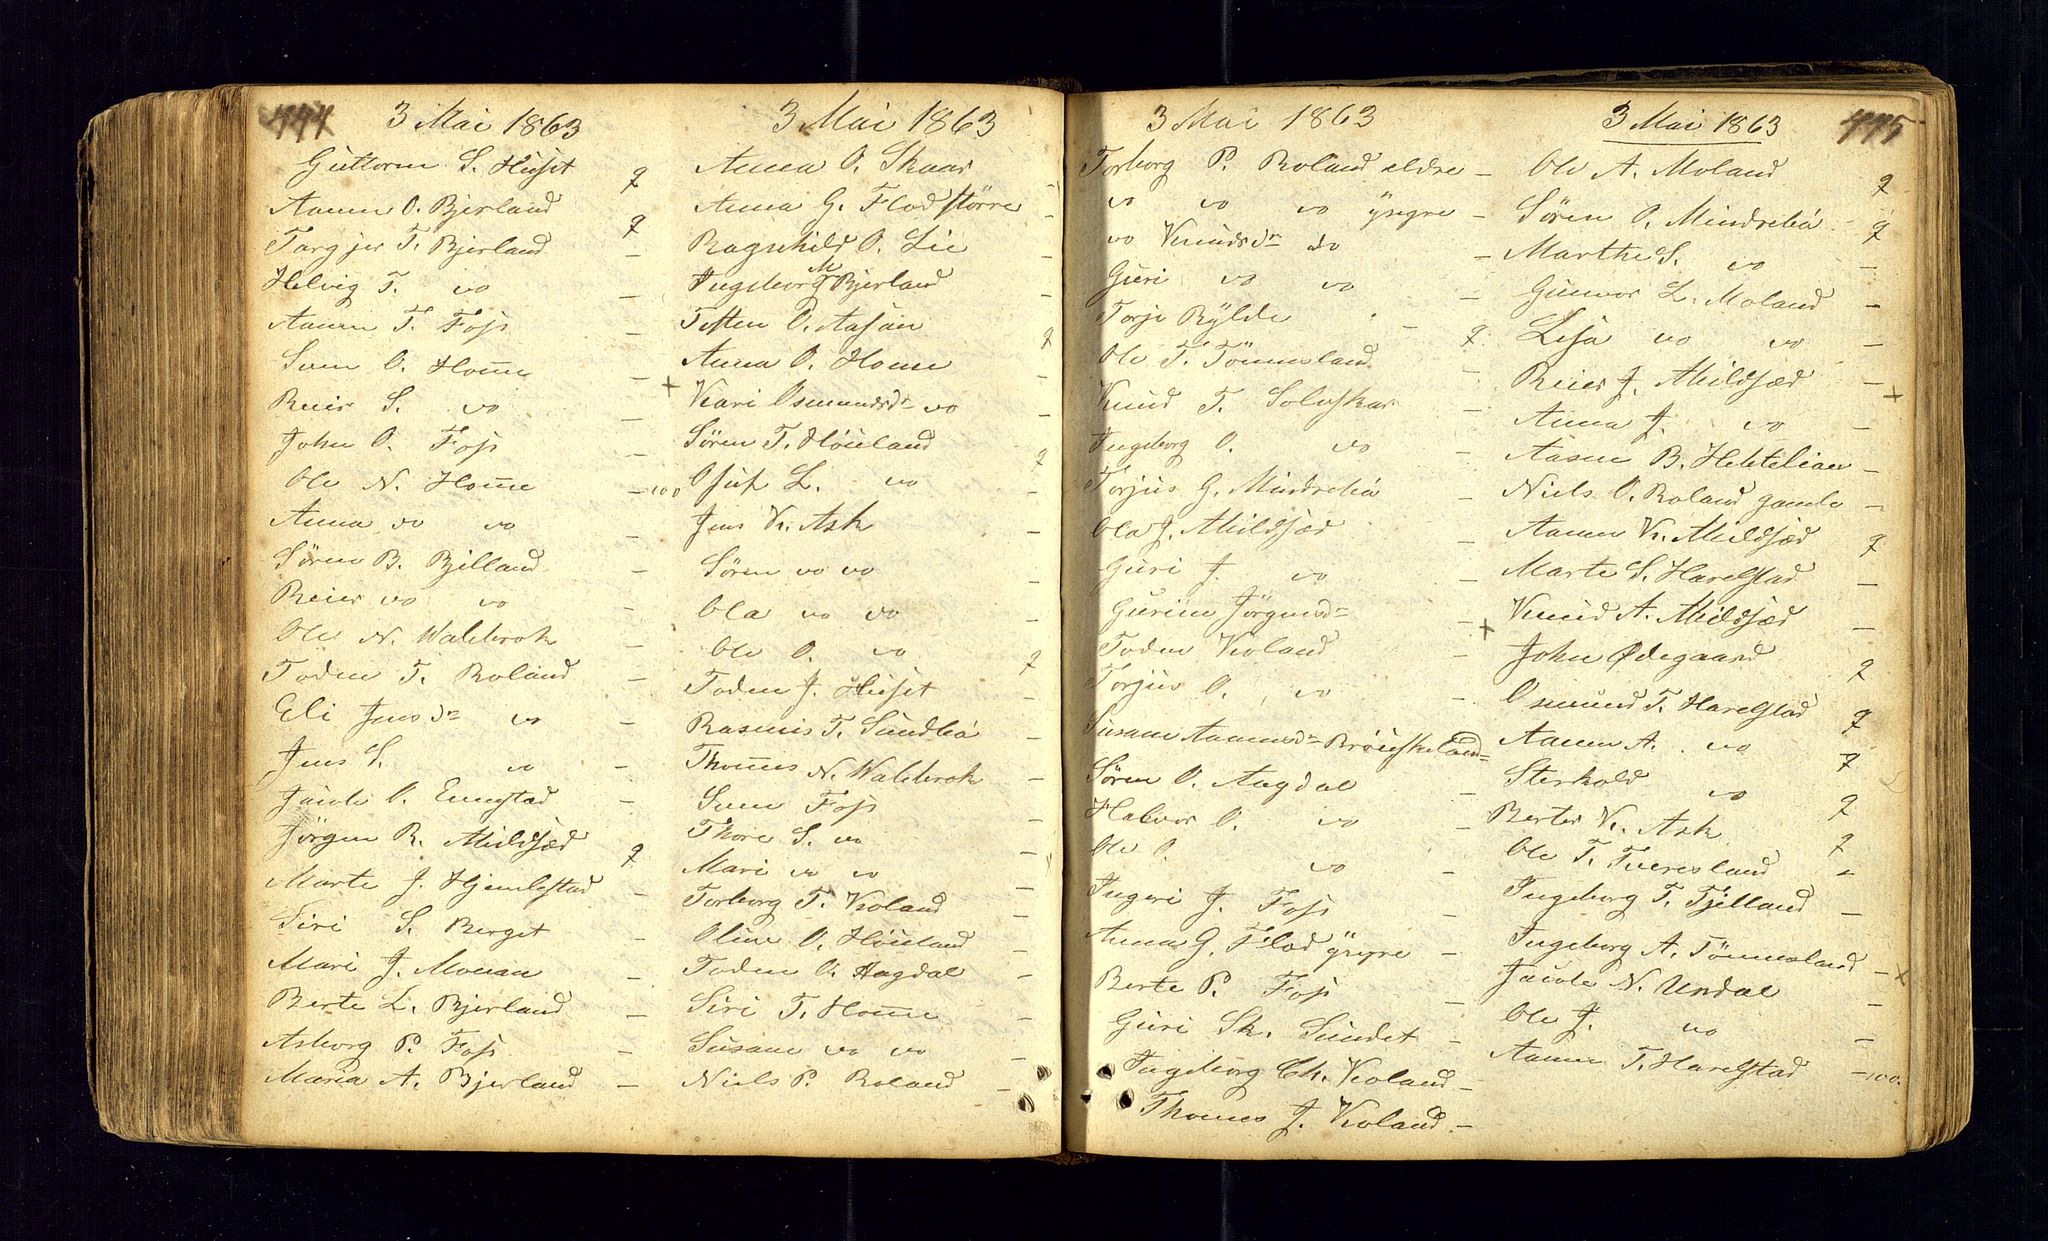 444
3 Mai 1863
Guttorm S. Huset q
Aanen O. Bjerland q
Targjer T. Bjerland -
Helvig T. do -
Aanen T. Foss -
Sven O. Home -
Reier S. do -
John O. Foss -
Ole N. Home - 100
Anna do do -
Sören B. Bjelland -
Reier do do -
Ole N. Walebrok -
Toden T. Roland -
Eli Jensdr do -
Jens S. do -
Jacob O. Emestad -
Jörgen R. Mildsjæd q
Marte J. Hjemlestad -
Siri S. Berget -
Mari J. Monan -
Berte L. Bjerland -
Asborg P. Foss -
Maria A. Bjerland -
3 Mai 1863
Anna O. Skaar -
Anna G. Flod större -
Ragnhild O. Lie -
Ingeborg M Bjerland -
Tosten O. Aasan q
Anna O. Home -
+ Kari Osmundsdr do -
Sören T. Höieland q
Osuf L. do -
Jens K. Ask -
Sören do do -
Ola do do -
Ole O. do q
Toden J. Huset -
Rasmus T. Sundbö -
Thomes N. Walebrok -
Sven Foss -
Thore S. do -
Mari do do -
Torborg T. Koland -
Oline O. Höieland -
Toden O. Aagdal -
Siri T. Home -
Susane do do -
Niels P. Roland -
3 Mai 1863
Torborg P. Roland eldre -
do do do yngre -
do Knudsdr do -
Guri do do -
Torje Rylde - q
Ole T. Tömmesland -
Knud T. Solvskar -
Ingeborg O. do -
Torjus G. Mindrebö -
Ola J. Mildsjæd -
Guri J. do -
Gurine Jörgensdr -
Toden Koland -
Torjus O. do -
Susane Aanensdr Bröiskeland -
Sören O. Aagdal -
Halvor O. do -
Ole O. do -
Ingeri J. Foss -
Anna G. Flod yngre -
Berte P. Foss -
Guri Sk. Sundet -
Ingeborg Ch. Koland -
Thomes J. Koland -
445
3 Mai 1863
Ole A. Moland q
Sören O. Mindrebö q
Marthe S. do -
Gunvor L. Moland -
Lisa do do -
Reier J. Mildsjæd - +
Anna J. do -
Aasne B. Hehtelien -
Niels O. Roland gamle -
Aanen K. Mildsjæd q
Marte S. Harelstad -
Knud A. Mildsjæd -
+ John Ødegaard q
Osmund T. Harelstad q
Aanen A. do q
Sterkold do q
Berter K. Ask q
Ole T. Tveresland -
Ingeborg T. Tjelland -
Ingeborg A. Tömmesland - +
Jacob N. Undal -
Ole J. do -
Aanen T. Harelstad - 100.